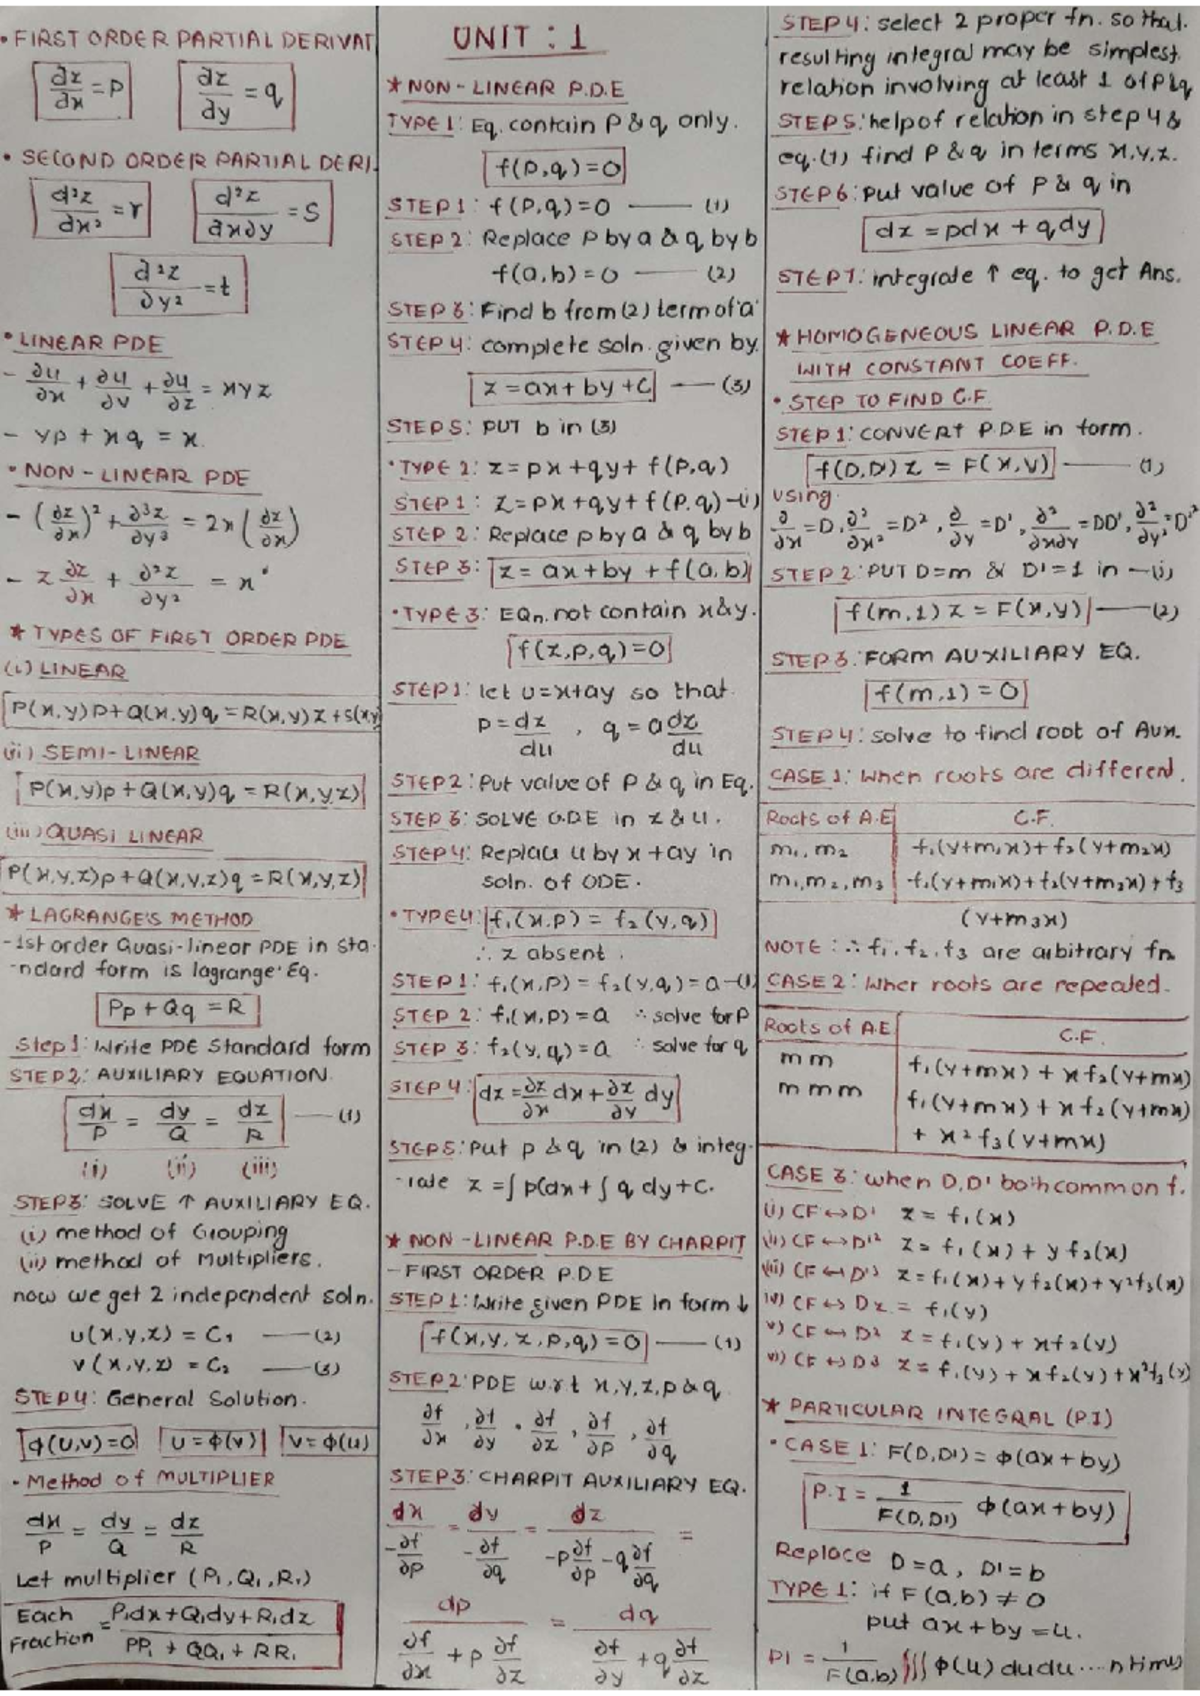 • FIRST ORDER PARTIAL DERIVAT
∂z/∂x = p   ∂z/∂y = q
• SECOND ORDER PARTIAL DERI.
d²z/dx² = r   d²z/∂x∂y = S
∂²z/∂y² = t
• LINEAR PDE
- ∂u/∂x + ∂u/∂v + ∂u/∂z = xyz
- yp + xq = x.
• NON-LINEAR PDE
- (∂z/∂x)² + ∂³z/∂y³ = 2x(∂z/∂x)
- z ∂z/∂x + ∂²z/∂y² = x
* TYPES OF FIRST ORDER PDE
(i) LINEAR
P(x,y)p+Q(x,y)q=R(x,y)z+S(xy
(ii) SEMI-LINEAR
P(x,y)p+Q(x,y)q=R(x,y,z)
(iii) QUASI LINEAR
P(x,y,z)p+Q(x,y,z)q=R(x,y,z)
* LAGRANGE'S METHOD
-1st order Quasi-linear PDE in sta-
-ndard form is lagrange' Eq.
Pp + Qq = R
Step 1: Write PDE Standard form
STEP2: AUXILIARY EQUATION.
dx/P = dy/Q = dz/R —— (1)
(i) (ii) (iii)
STEP3: SOLVE ↑ AUXILIARY EQ.
(i) method of Grouping
(ii) method of Multipliers.
now we get 2 independent soln.
u(x,y,z) = C₁ —— (2)
v(x,y,z) = C₂ —— (3)
STEP4: General Solution.
ϕ(u,v)=0   u=ϕ(v)   v=ϕ(u)
• Method of MULTIPLIER
dx/P = dy/Q = dz/R
Let multiplier (P₁,Q₁,R₁)
Each Fraction = P₁dx+Q₁dy+R₁dz / PP₁ + QQ₁ + RR₁
UNIT : 1
* NON-LINEAR P.D.E
TYPE 1: Eq. contain P & q only.
f(p,q)=0
STEP 1: f(P,q)=0 —— (1)
STEP 2: Replace p by a & q by b
f(a,b)=0 —— (2)
STEP 3: Find b from (2) term of 'a'
STEP 4: complete soln. given by.
z = ax+by+c —— (3)
STEP 5: PUT b in (3)
• TYPE 2: z=px+qy+f(p,q)
STEP 1: z=px+qy+f(p,q)-(i)
STEP 2: Replace p by a & q by b
STEP 3: z = ax+by + f(a,b)
• TYPE 3: EQn. not contain x&y.
f(z,p,q)=0
STEP 1: let u=x+ay so that
p=dz/du , q=a dz/du
STEP 2: Put value of P & q in Eq.
STEP 3: SOLVE O.D.E in z & u.
STEP 4: Replace u by x+ay in
soln. of ODE.
• TYPE 4: f₁(x,p) = f₂(y,q)
∴ z absent.
STEP 1: f₁(x,p)=f₂(y,q)=a-(1)
STEP 2: f₁(x,p)=a ∴ solve for p
STEP 3: f₂(y,q)=a ∴ solve for q
STEP 4: dz=∂z/∂x dx+∂z/∂y dy
STEP 5: Put p & q in (2) & integ-
-rate z=∫pdx+∫q dy+c.
* NON-LINEAR P.D.E BY CHARPIT
- FIRST ORDER P.D.E
STEP 1: Write given PDE in form ↓
f(x,y,z,p,q)=0 —— (1)
STEP 2: PDE w.r.t x,y,z,p & q.
∂f/∂x , ∂f/∂y , ∂f/∂z , ∂f/∂p , ∂f/∂q
STEP 3: CHARPIT AUXILIARY EQ.
dx/(-∂f/∂p) = dy/(-∂f/∂q) = dz/(-p∂f/∂p - q∂f/∂q) =
dp/(∂f/∂x + p ∂f/∂z) = dq/(∂f/∂y + q ∂f/∂z)
STEP 4: select 2 proper fn. so that
resulting integral may be simplest
relation involving at least 1 of p & q
STEP 5: help of relation in step 4 &
eq.(1) find P & q in terms x,y,z.
STEP 6: put value of P & q in
dz = pdx + qdy
STEP 7: integrate ↑ eq. to get Ans.
* HOMOGENEOUS LINEAR P.D.E
WITH CONSTANT COEFF.
• STEP TO FIND C.F
STEP 1: CONVERT PDE in form.
f(D,D')z = F(x,y) —— (1)
using.
∂/∂x=D, ∂²/∂x²=D², ∂/∂y=D', ∂²/∂x∂y=DD', ∂²/∂y²=D'²
STEP 2: PUT D=m & D'=1 in -(i)
f(m,1)z = F(x,y) —— (2)
STEP 3: FORM AUXILIARY EQ.
f(m,1)=0
STEP 4: solve to find root of Aux.
CASE 1: When roots are different.
Roots of A.E   C.F.
m₁, m₂   f₁(y+m₁x)+f₂(y+m₂x)
m₁,m₂,m₃   f₁(y+m₁x)+f₂(y+m₂x)+f₃
(y+m₃x)
NOTE: ∴ f₁,f₂,f₃ are arbitrary fn
CASE 2: Wher roots are repeated.
Roots of A.E   C.F.
m m   f₁(y+mx) + xf₂(y+mx)
m m m   f₁(y+mx) + xf₂(y+mx)
+ x²f₃(y+mx)
CASE 3: when D,D' both common f.
i) CF ↔ D' z = f₁(x)
ii) CF ↔ D'² z = f₁(x) + yf₂(x)
iii) CF ↔ D'³ z=f₁(x)+yf₂(x)+y²f₃(x)
iv) CF ↔ D z = f₁(y)
v) CF ↔ D² z = f₁(y)+xf₂(y)
vi) CF ↔ D³ z = f₁(y)+xf₂(y)+x²f₃(y)
* PARTICULAR INTEGRAL (P.I)
• CASE 1: F(D,D')=ϕ(ax+by)
P.I = 1/F(D,D') ϕ(ax+by)
Replace D=a, D'=b
TYPE 1: if F(a,b)≠0
put ax+by=u.
PI = 1/F(a,b) ∫∫∫ϕ(u)dudu....n times